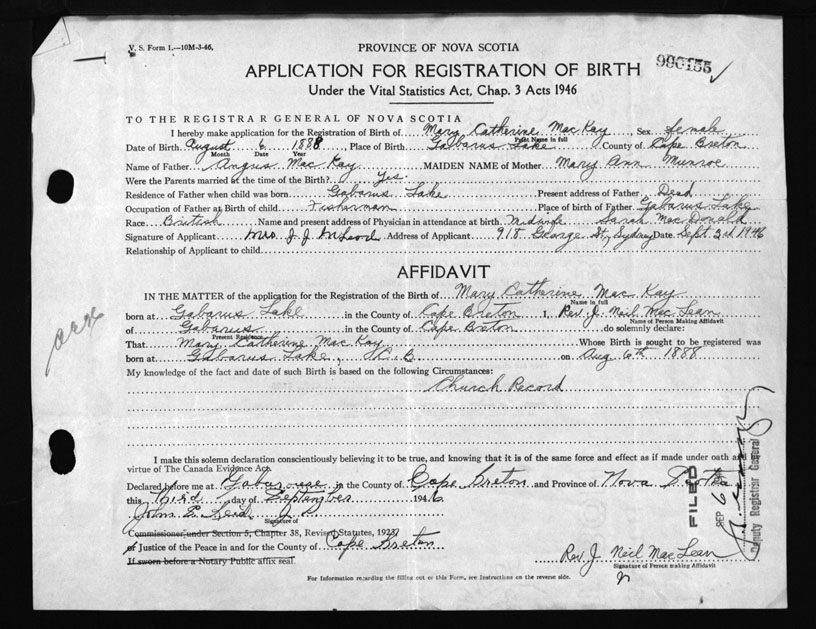 V. S. Form 1.—10M-3-46.
PROVINCE OF NOVA SCOTIA
990155
APPLICATION FOR REGISTRATION OF BIRTH
Under the Vital Statistics Act, Chap. 3 Acts 1946
TO THE REGISTRAR GENERAL OF NOVA SCOTIA
I hereby make application for the Registration of Birth of Mary Catherine MacKay, Sex female
Print Name in full
Date of Birth August 6 1888, Place of Birth Gabarus Lake County of Cape Breton
Month Date Year
Name of Father Angus MacKay MAIDEN NAME of Mother Mary Ann Munroe
Were the Parents married at the time of the Birth? Yes.
Residence of Father when child was born Gabarus Lake Present address of Father Dead
Occupation of Father at Birth of child Fisherman Place of birth of Father Gabarus Lake
Race British Name and present address of Physician in attendance at birth Midwife Sarah MacDonald
Signature of Applicant Mrs J. J. McLeod Address of Applicant 918 George St, Sydney Date Sept. 3rd 1946
Relationship of Applicant to child
AFFIDAVIT
IN THE MATTER of the application for the Registration of the Birth of Mary Catherine MacKay
Name in full
born at Gabarus Lake in the County of Cape Breton I, Rev. J. Neil MacLean
Name of Person Making Affidavit
of Gabarus in the County of Cape Breton do solemnly declare:
Present Residence
That Mary Catherine MacKay Whose Birth is sought to be registered was
born at Gabarus Lake, C. B. on Aug 6th 1888
My knowledge of the fact and date of such Birth is based on the following Circumstances:
Church Record
I make this solemn declaration conscientiously believing it to be true, and knowing that it is of the same force and effect as if made under oath and
virtue of The Canada Evidence Act.
Declared before me at Gabarouse in the County of Cape Breton and Province of Nova Scotia
this Third day of September 1946
John E. Reid J P
Signature of
Commissioner under Section 5, Chapter 38, Revised Statutes, 1923
of Justice of the Peace in and for the County of Cape Breton
If sworn before a Notary Public affix seal.
Rev J. Neil MacLean
Signature of Person making Affidavit
For Information regarding the filling out of this Form, see Instructions on the reverse side.
FILED
SEP 6
Deputy Registrar General